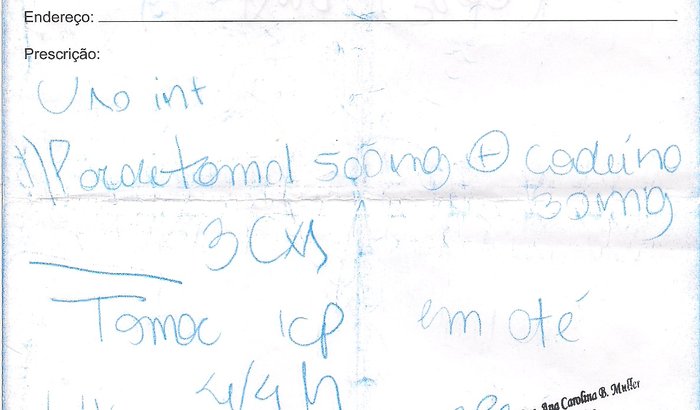 Endereço:
Prescrição:
Uso int
1) Paracetamol 500mg + codeína
30mg
3 cxs
Tomar 1cp em até
4/4h
Ana Carolina B. Muller